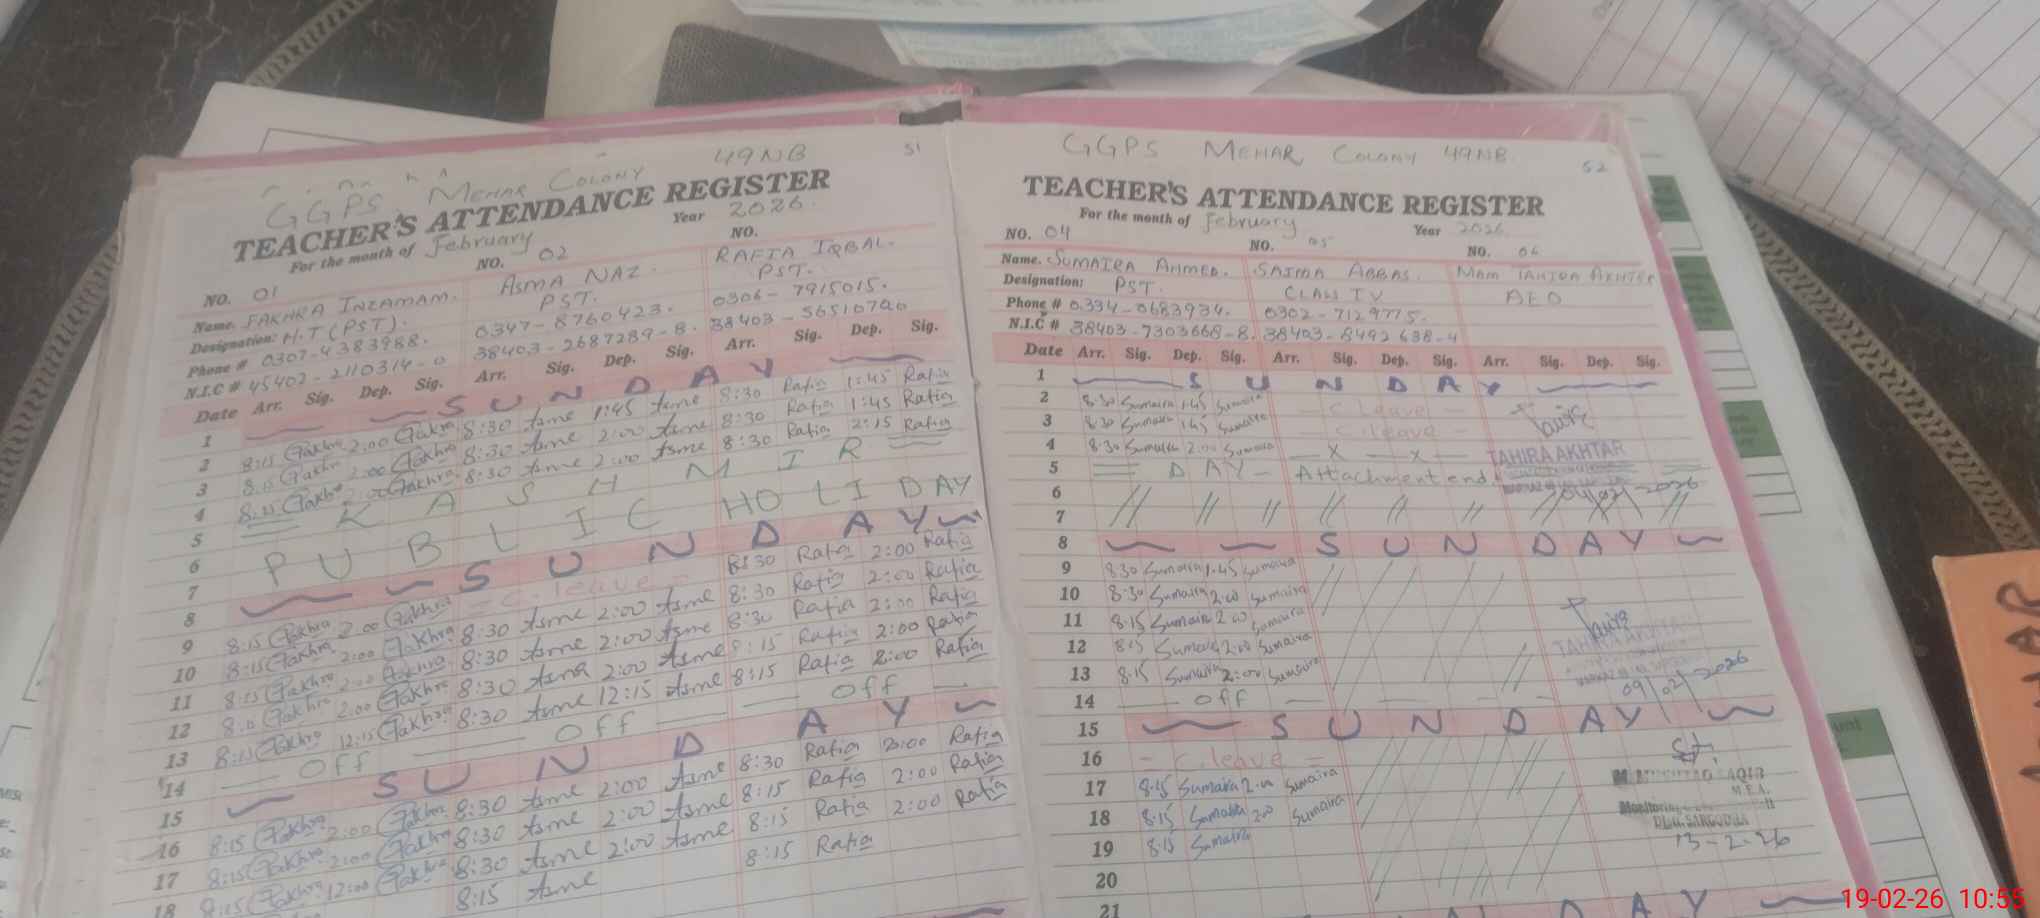 49NB
51
GGPS, MEHAR COLONY
TEACHER'S ATTENDANCE REGISTER
For the month of February Year 2026.
NO. 01 NO. 02 NO.
Name. FAKHRA INZAMAM. ASMA NAZ. RAFIA IQBAL.
Designation: H.T (PST). PST. PST.
Phone # 0307-4383988. 0347-8760423. 0306-7915015.
N.I.C # 45402-2110314-0 38403-2687289-8.
Date Arr. Sig. Dep. Sig. Arr. Sig. Dep. Sig. Arr. Sig. Dep. Sig.
1 SUNDAY
2 8:15 Fakhra 2:00 Fakhra 8:30 Asme 1:45 Asme 8:30 Rafia 1:45 Rafia
3 8:15 Fakhra 2:00 Fakhra 8:30 Asme 2:00 Asme 8:30 Rafia 1:45 Rafia
4 8:15 Fakhra 2:00 Fakhra 8:30 Asme 2:00 Asme 8:30 Rafia 2:15 Rafia
5 KASHMIR
6 PUBLIC HOLIDAY
7
8 SUNDAY
9 8:15 Fakhra 2:00 Fakhra - c.leave - 8:30 Rafia 2:00 Rafia
10 8:15 Fakhra 2:00 Fakhra 8:30 Asme 2:00 Asme 8:30 Rafia 2:00 Rafia
11 8:15 Fakhra 2:00 Fakhra 8:30 Asme 2:00 Asme 8:30 Rafia 2:00 Rafia
12 8:15 Fakhra 2:00 Fakhra 8:30 Asme 2:00 Asme 8:15 Rafia 2:00 Rafia
13 8:15 Fakhra 12:15 Fakhra 8:30 Asme 12:15 Asme 8:15 Rafia 2:00 Rafia
14 Off Off Off
15 SUNDAY
16 8:15 Fakhra 2:00 Fakhra 8:30 Asme 2:00 Asme 8:30 Rafia 2:00 Rafia
17 8:15 Fakhra 2:00 Fakhra 8:30 Asme 2:00 Asme 8:15 Rafia 2:00 Rafia
18 8:15 Fakhra 12:00 Fakhra 8:30 Asme 2:00 Asme 8:15 Rafia 2:00 Rafia
8:15 Asme 8:15 Rafia
GGPS MEHAR COLONY 49NB.
52
TEACHER'S ATTENDANCE REGISTER
For the month of February Year 2026
NO. 04 NO. 05 NO. 06
Name. SUMAIRA AHMED. SAIMA ABBAS. MAM TAHIRA AKHTER
Designation: PST. CLASS IV AEO
Phone # 0334-0683934. 0302-7129775.
N.I.C # 38403-7303668-8. 38403-8492638-4
Date Arr. Sig. Dep. Sig. Arr. Sig. Dep. Sig. Arr. Sig. Dep. Sig.
1 SUNDAY
2 8:30 Sumaira 1:45 Sumaira - c.leave -
3 8:30 Sumaira 1:45 Sumaira - c.leave -
4 8:30 Sumaira 2:00 Sumaira - x - x - TAHIRA AKHTAR
5 DAY - Attachment end
04/02/2026
6
7
8 SUNDAY
9 8:30 Sumaira 1:45 Sumaira
10 8:30 Sumaira 2:00 Sumaira
11 8:15 Sumaira 2:00 Sumaira
12 8:15 Sumaira 2:00 Sumaira TAHIRA AKHTAR
13 8:15 Sumaira 2:00 Sumaira
09/02/2026
14 Off
15 SUNDAY
16 - c.leave -
17 8:15 Sumaira 2:00 Sumaira
M.E.A.
18 8:15 Sumaira 2:00 Sumaira
SARGODHA
19 8:15 Sumaira
13-2-26
20
21 DAY
19-02-26 10:55